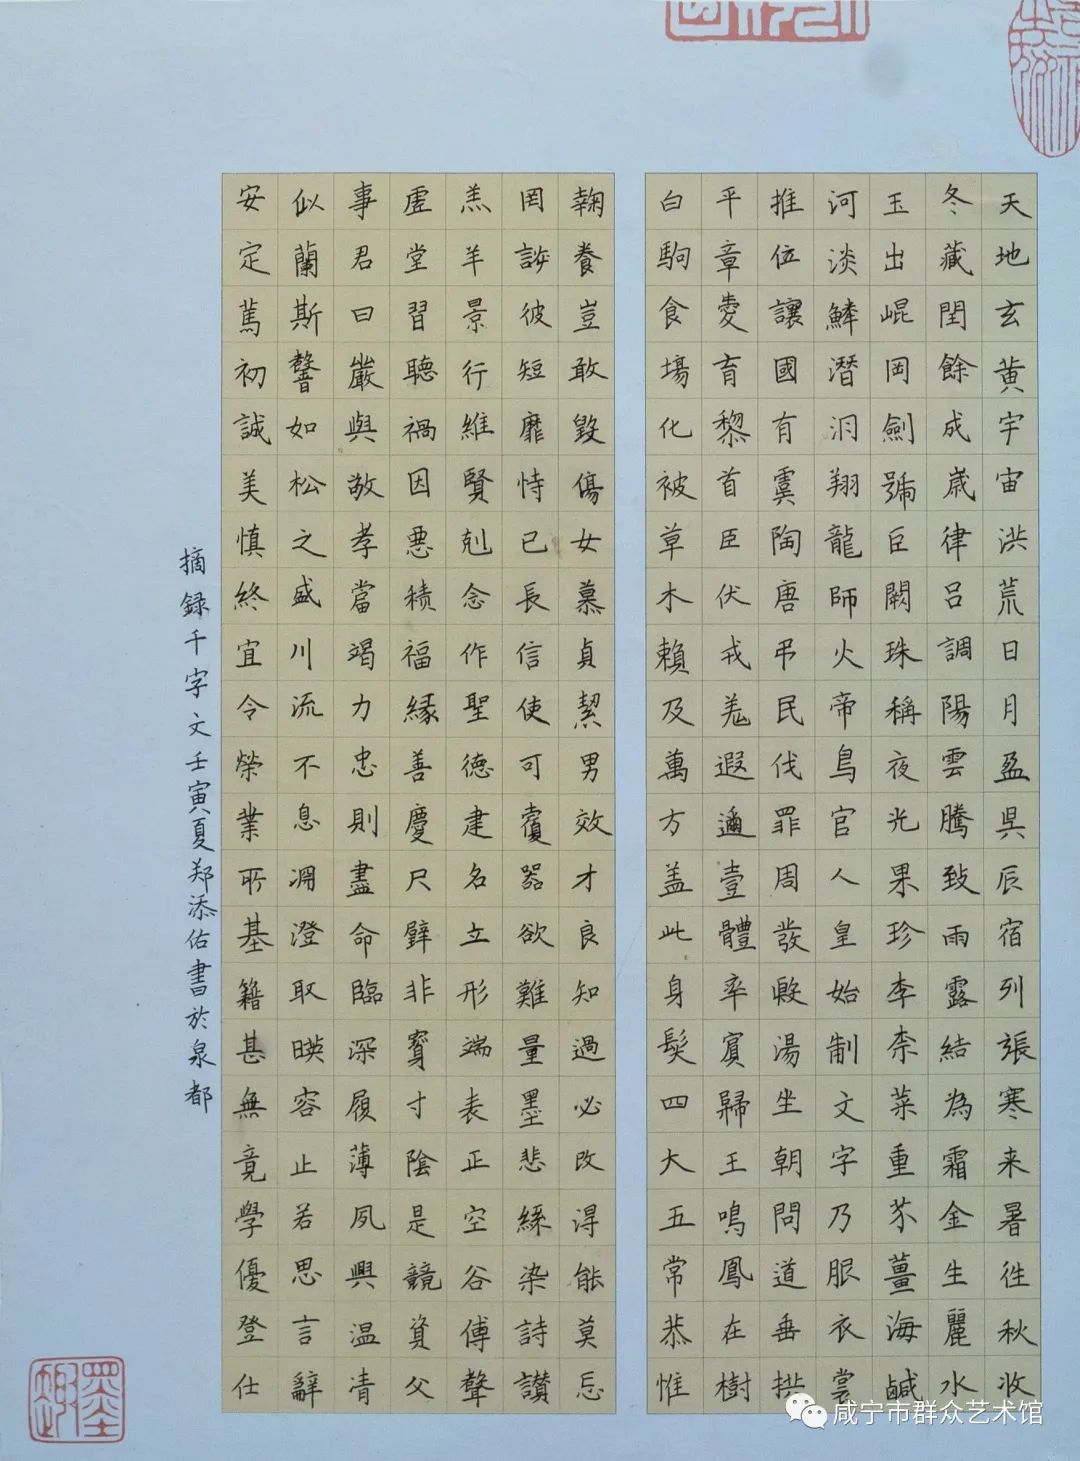 天地玄黄宇宙洪荒日月盈昃辰宿列張寒来暑往秋收
冬藏閏餘成歲律呂調陽雲騰致雨露結為霜金生麗水
玉出崐岡劍號巨闕珠稱夜光果珍李柰菜重芥薑海鹹
河淡鱗潛羽翔龍師火帝鳥官人皇始制文字乃服衣裳
推位讓國有虞陶唐弔民伐罪周發殷湯坐朝問道垂拱
平章愛育黎首臣伏戎羌遐邇壹體率賓歸王鳴鳳在樹
白駒食場化被草木賴及萬方蓋此身髮四大五常恭惟
鞠養豈敢毀傷女慕貞絜男效才良知過必改得能莫忘
罔談彼短靡恃己長信使可覆器欲難量墨悲絲染詩讚
羔羊景行維賢剋念作聖德建名立形端表正空谷傳聲
虛堂習聽禍因惡積福緣善慶尺璧非寶寸陰是競資父
事君曰嚴與敬孝當竭力忠則盡命臨深履薄夙興温凊
似蘭斯馨如松之盛川流不息淵澄取暎容止若思言辭
安定篤初誠美慎終宜令榮業所基籍甚無竟學優登仕
摘録千字文壬寅夏郑添佑書於泉都
咸宁市群众艺术馆